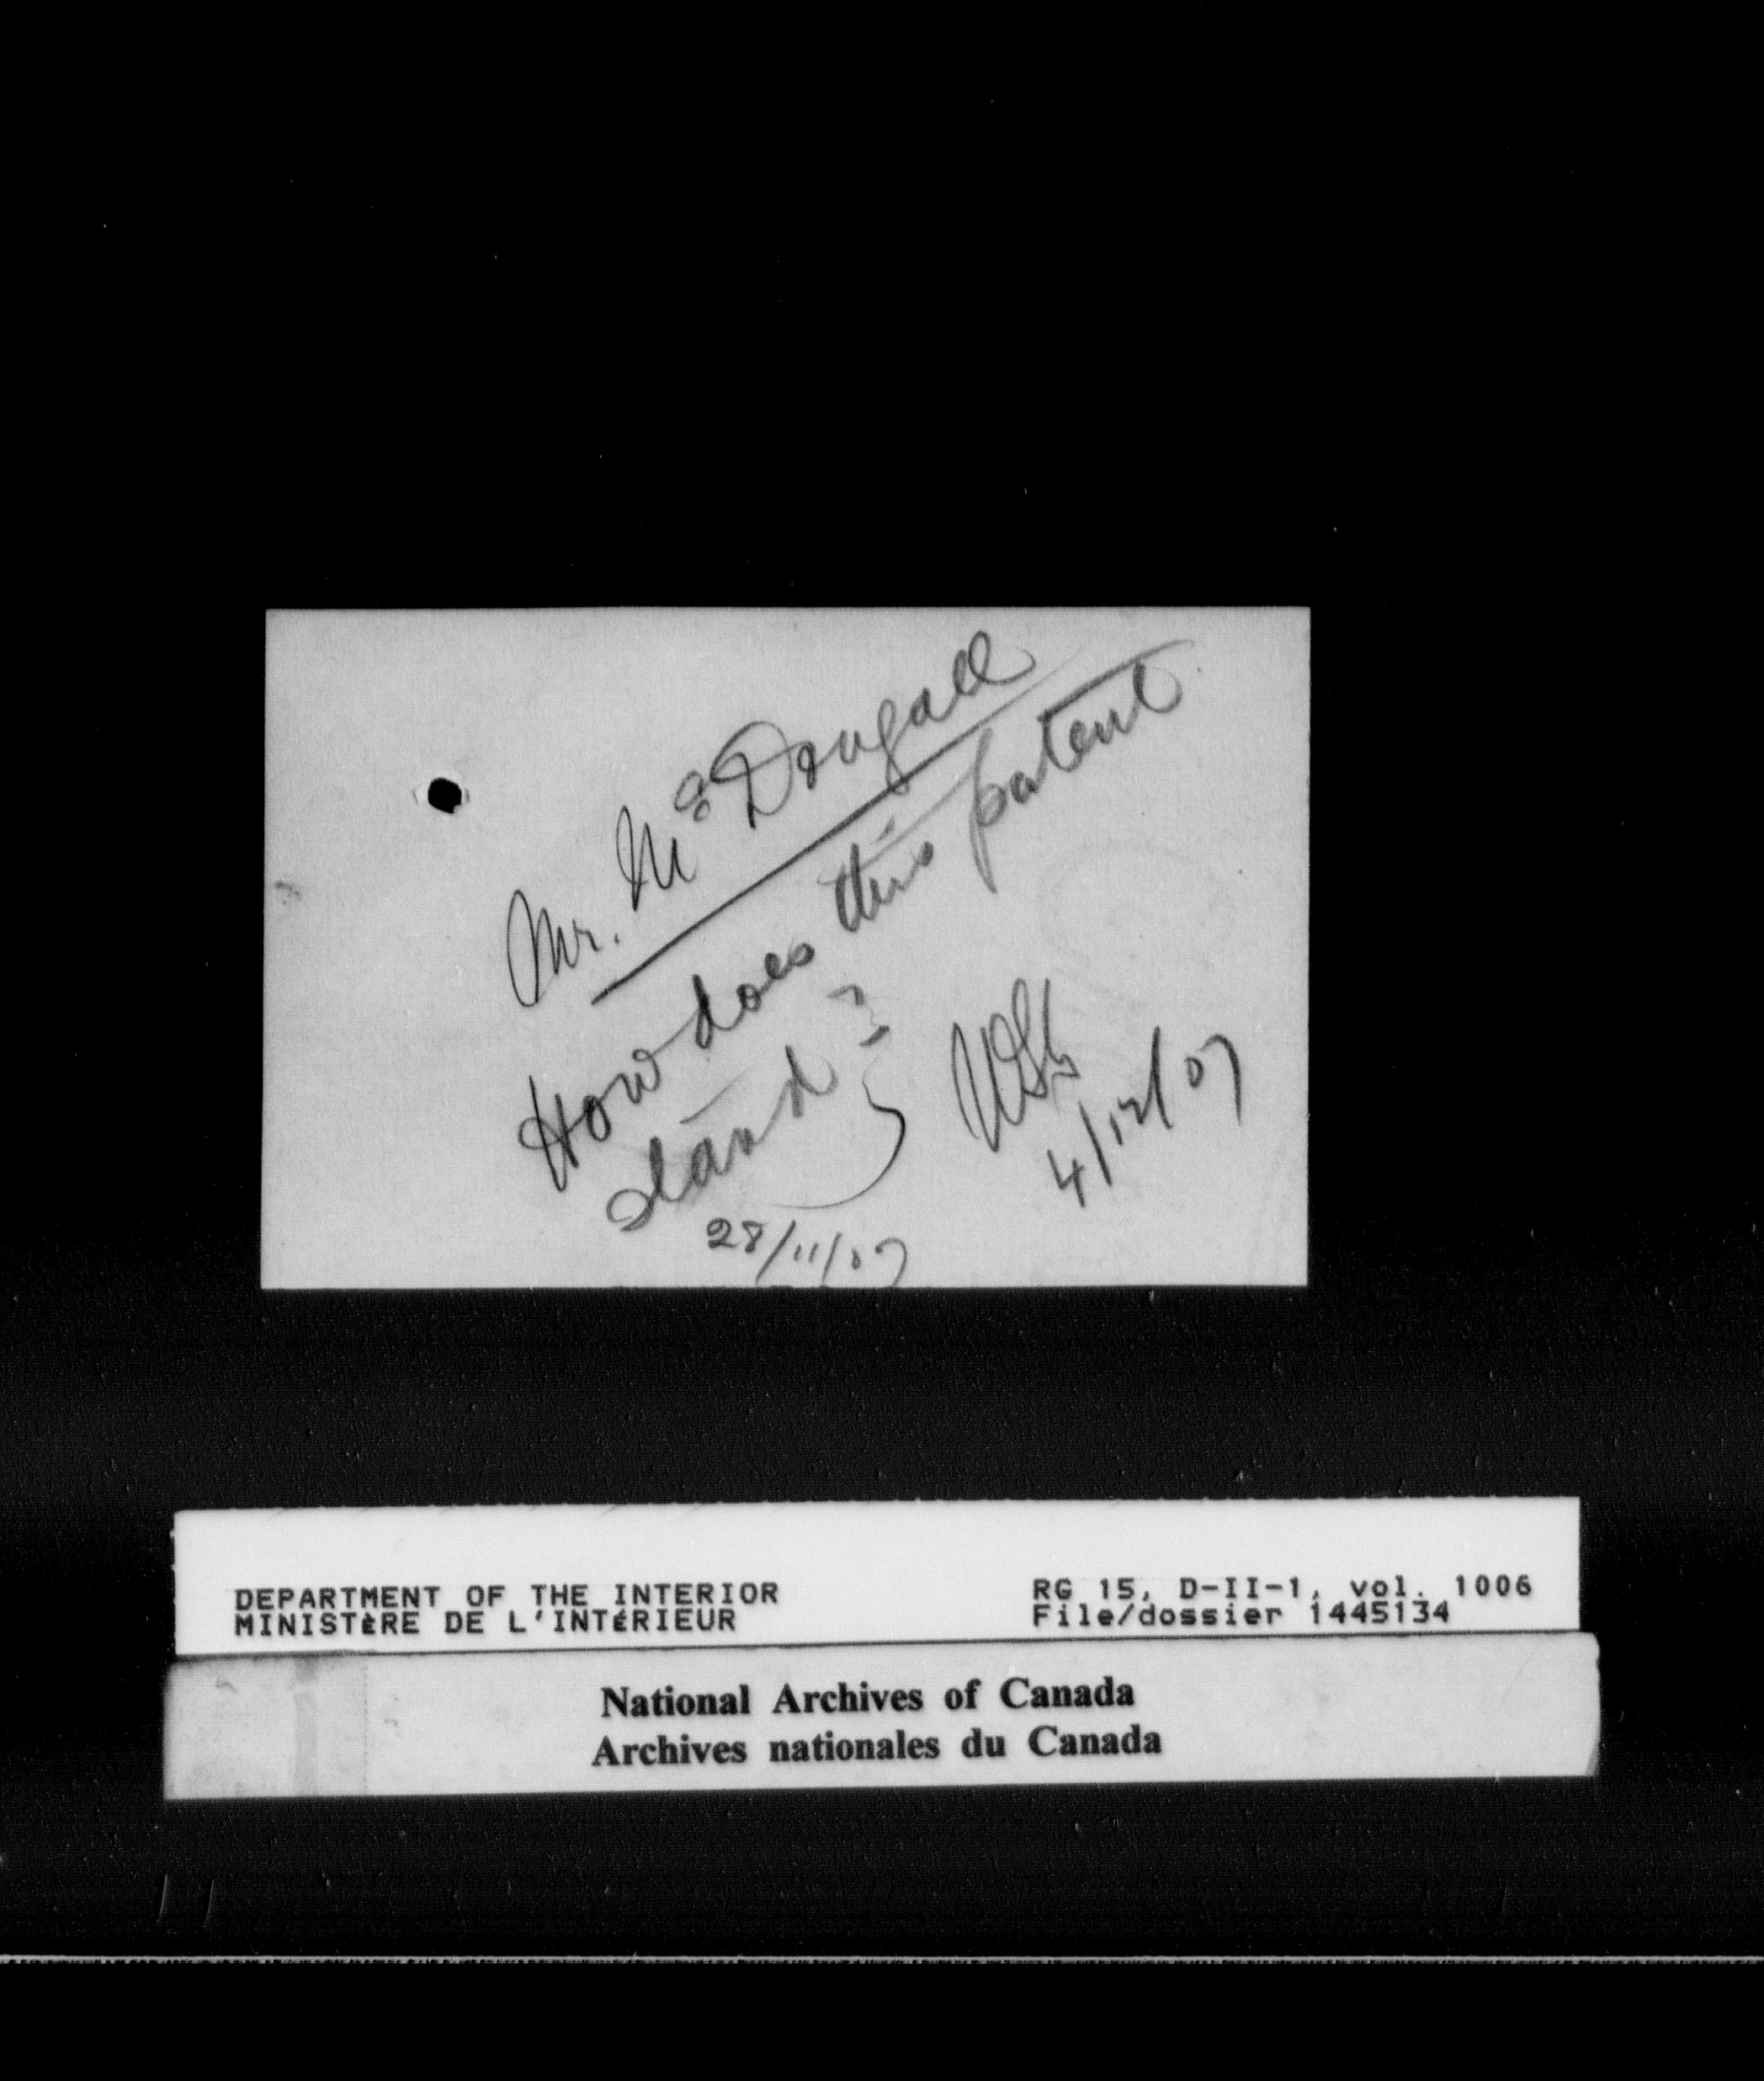 Mr. McDougall
How does this patent
stand?
28/11/07
4/12/07
DEPARTMENT OF THE INTERIOR
MINISTÈRE DE L'INTÉRIEUR
RG 15, D-II-1, vol. 1006
File/dossier 1445134
National Archives of Canada
Archives nationales du Canada